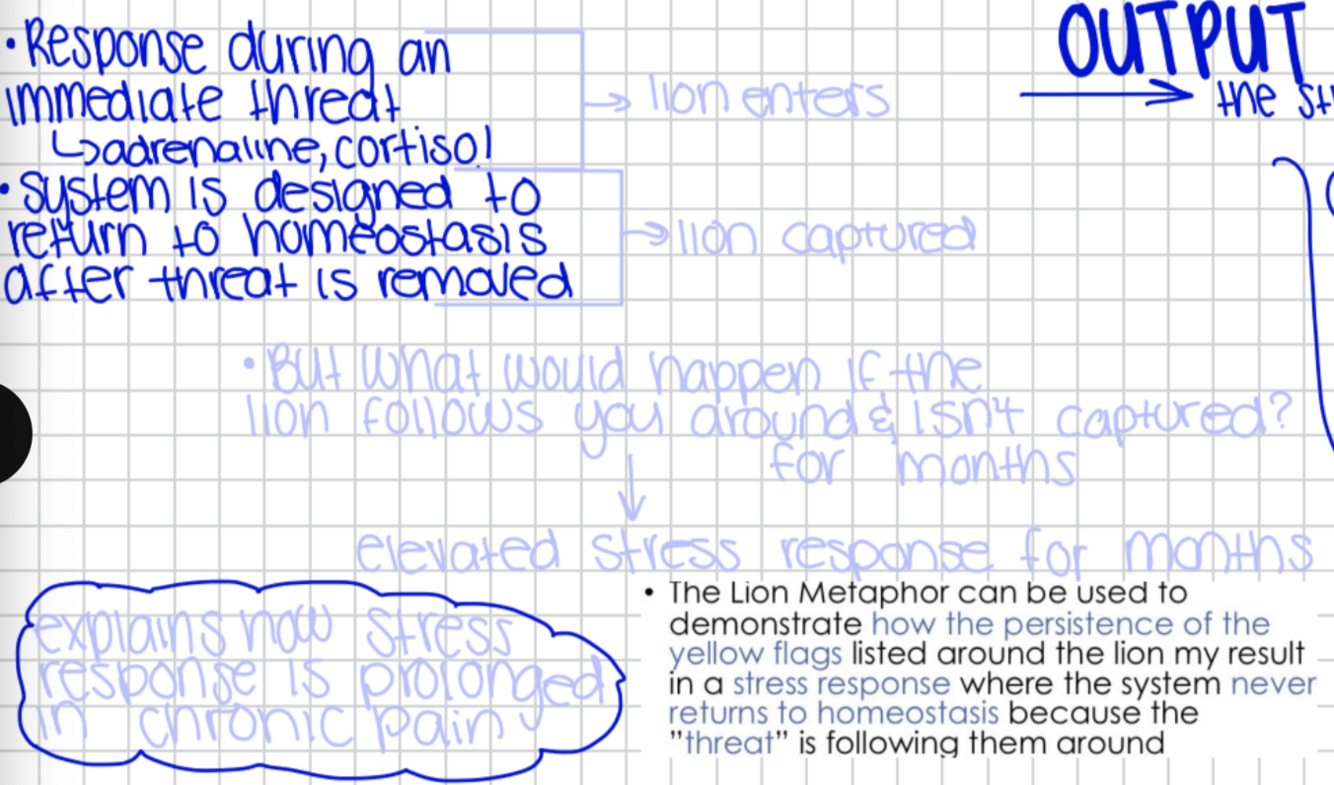 • Response during an
immediate threat
↳adrenaline, cortisol
→ lion enters
• System is designed to
return to homeostasis
after threat is removed
→ lion captured
OUTPUT
→ the
• But what would happen if the
lion follows you around & isn't captured?
for months
↓
elevated stress response for months
explains how stress
response is prolonged
in chronic pain
• The Lion Metaphor can be used to
demonstrate how the persistence of the
yellow flags listed around the lion my result
in a stress response where the system never
returns to homeostasis because the
"threat" is following them around